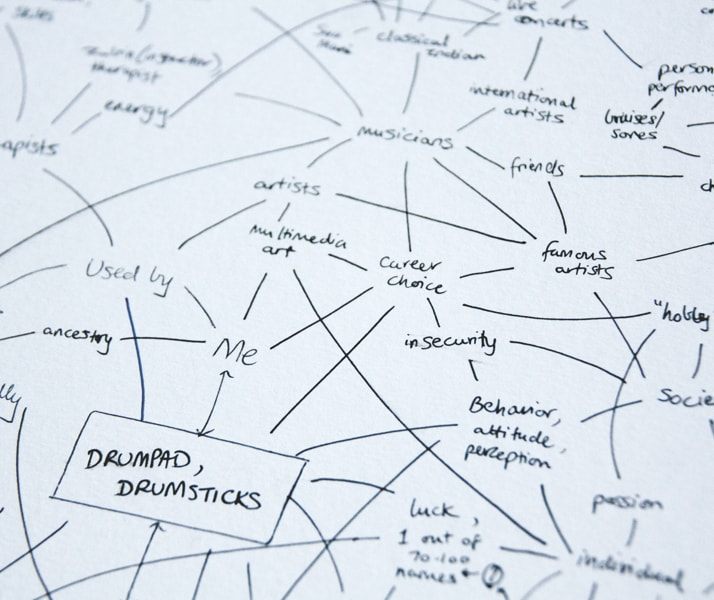 live
concerts
classical
Indian
therapist
energy
international
artists
person
performa
bruises/
sores
musicians
apists
friends
artists
multimedia
art
career
choice
famous
artists
Used by
"hobby
ancestry
Me
insecurity
Socie
Behavior,
attitude,
perception
DRUMPAD,
DRUMSTICKS
passion
luck,
1 out of
70-100
names
individual